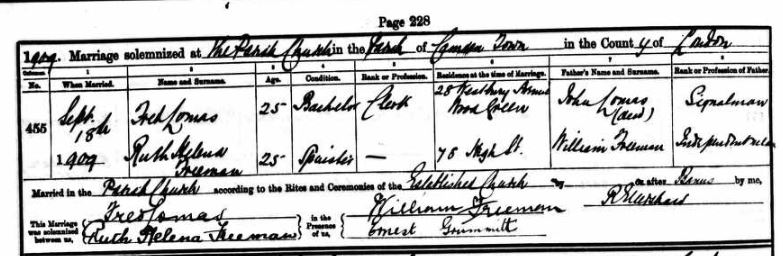 Page 228
1909. Marriage solemnized at The Parish Church in the Parish of Camden Town in the County of London
Columns 1 2 3 4 5 6 7 8
No. When Married. Name and Surname. Age. Condition. Rank or Profession. Residence at the time of Marriage. Father's Name and Surname. Rank or Profession of Father.
455 Sept. 18th 1909 Fred Lomas 25 Bachelor Clerk 28 Westbury Avenue Wood Green John Lomas (decd) Signalman
Ruth Helena Freeman 25 Spinster — 78 High St. William Freeman Independent means
Married in the Parish Church according to the Rites and Ceremonies of the Established Church by or after Banns by me,
This Marriage was solemnized between us, Fred Lomas in the Presence of us, William Freeman
Ruth Helena Freeman Ernest Grummitt